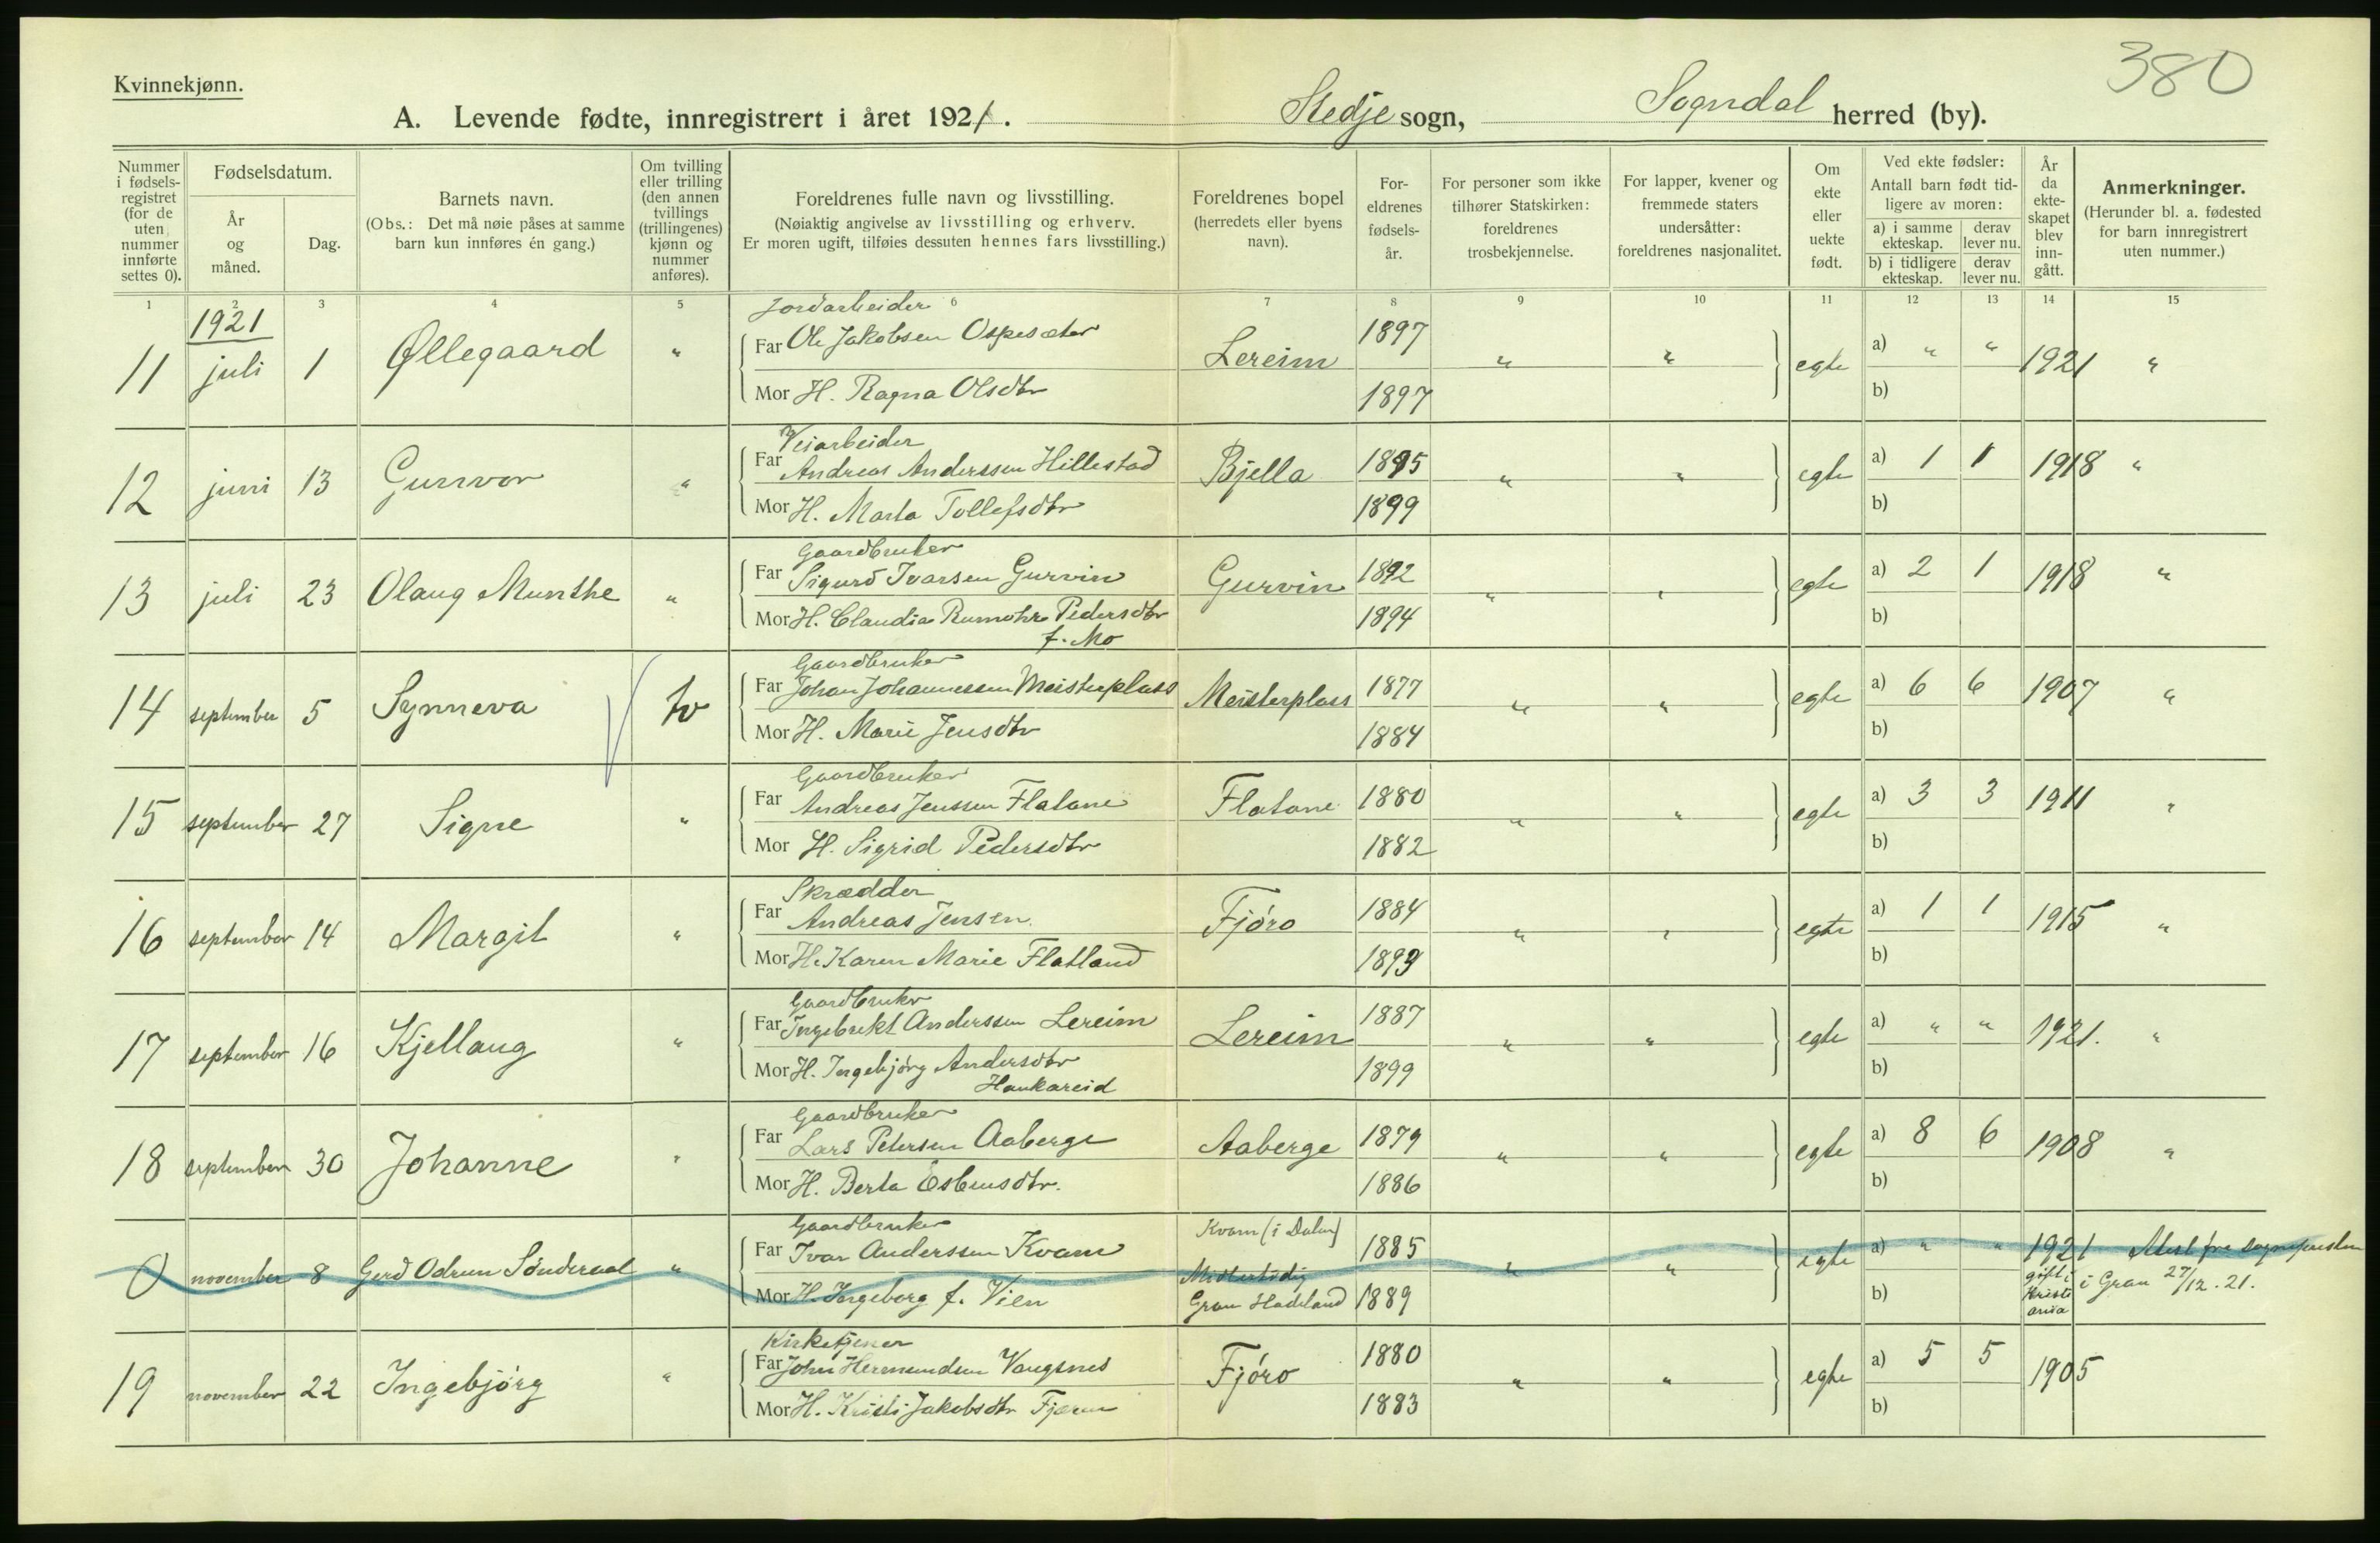 380
Kvinnekjønn.
A. Levende fødte, innregistrert i året 1921. Stedje sogn, Sogndal herred (by).
Nummer i fødsels- registret (for de uten nummer innførte settes 0).
Fødselsdatum.
År og måned.
Dag.
Barnets navn.
(Obs.: Det må nøie påses at samme barn kun innføres én gang.)
Om tvilling eller trilling (den annen tvillings (trillingenes) kjønn og nummer anføres).
Foreldrenes fulle navn og livsstilling.
(Nøiaktig angivelse av livsstilling og erhverv.
Er moren ugift, tilføies dessuten hennes fars livsstilling.)
Foreldrenes bopel
(herredets eller byens navn).
For- eldrenes fødsels- år.
For personer som ikke tilhører Statskirken: foreldrenes trosbekjennelse.
For lapper, kvener og fremmede staters undersåtter: foreldrenes nasjonalitet.
Om ekte eller uekte født.
Ved ekte fødsler:
Antall barn født tid- ligere av moren:
a) i samme ekteskap. derav lever nu.
b) i tidligere ekteskap. derav lever nu.
År da ekte- skapet blev inn- gått.
Anmerkninger.
(Herunder bl. a. fødested for barn innregistrert uten nummer.)
1 2 3 4 5 6 7 8 9 10 11 12 13 14 15
1921
Jordarbeider
11 juli 1 Øllegaard " Far Ole Jakobsen Ospesæter Lereim 1897 " " egte a) " " 1921 "
Mor H. Ragna Olsdtr 1897 b)
Veiarbeider
12 juni 13 Gunvor " Far Andreas Anderssen Hillestad Bjella 1895 " " egte a) 1 1 1918 "
Mor H. Marta Tollefsdtr 1899 b)
Gaardbruker
13 juli 23 Olaug Munthe " Far Sigurd Ivarsen Gurvin Gurvin 1892 " " egte a) 2 1 1918 "
Mor H. Claudia Rumohr Pedersdtr 1894 b)
f. Mo
Gaardbruker
14 september 5 Synneva tv Far Johan Johannessen Meisterplass Meisterplass 1877 " " egte a) 6 6 1907 "
Mor H. Marie Jensdtr 1884 b)
Gaardbruker
15 september 27 Signe " Far Andreas Jenssen Flatane Flatane 1880 " " egte a) 3 3 1911 "
Mor H. Sigrid Pedersdtr 1882 b)
Skrædder
16 september 14 Margit " Far Andreas Jensen Fjóro 1884 " " egte a) 1 1 1915 "
Mor H. Karen Marie Flatland 1893 b)
Gaardbruker
17 september 16 Kjellaug " Far Ingebrikt Anderssen Lereim Lereim 1887 " " egte a) " " 1921. "
Mor H. Ingebjórg Andersdtr 1899 b)
Haukareid
Gaardbruker
18 september 30 Johanne " Far Lars Petersen Aaberge Aaberge 1879 " " egte a) 8 6 1908 "
Mor H. Berta Esbensdtr. 1886 b)
Gaardbruker Kvam (i Dalen)
0 november 8 Gerd Odrun Sønderaal " Far Ivar Anderssen Kvam 1885 " " egte a) " " 1921 Attest fra sognepresten
Midlertidig gift i i Gran 27/12. 21.
Mor H. Ingeborg f. Vien Gran Hadeland 1889 b) Kristi ania
Kirketjener
19 november 22 Ingebjórg " Far John Hermundsen Vangsnes Fjóro 1880 " " egte a) 5 5 1905
Mor H. Kristi Jakobsdtr Fjærum 1883 b)